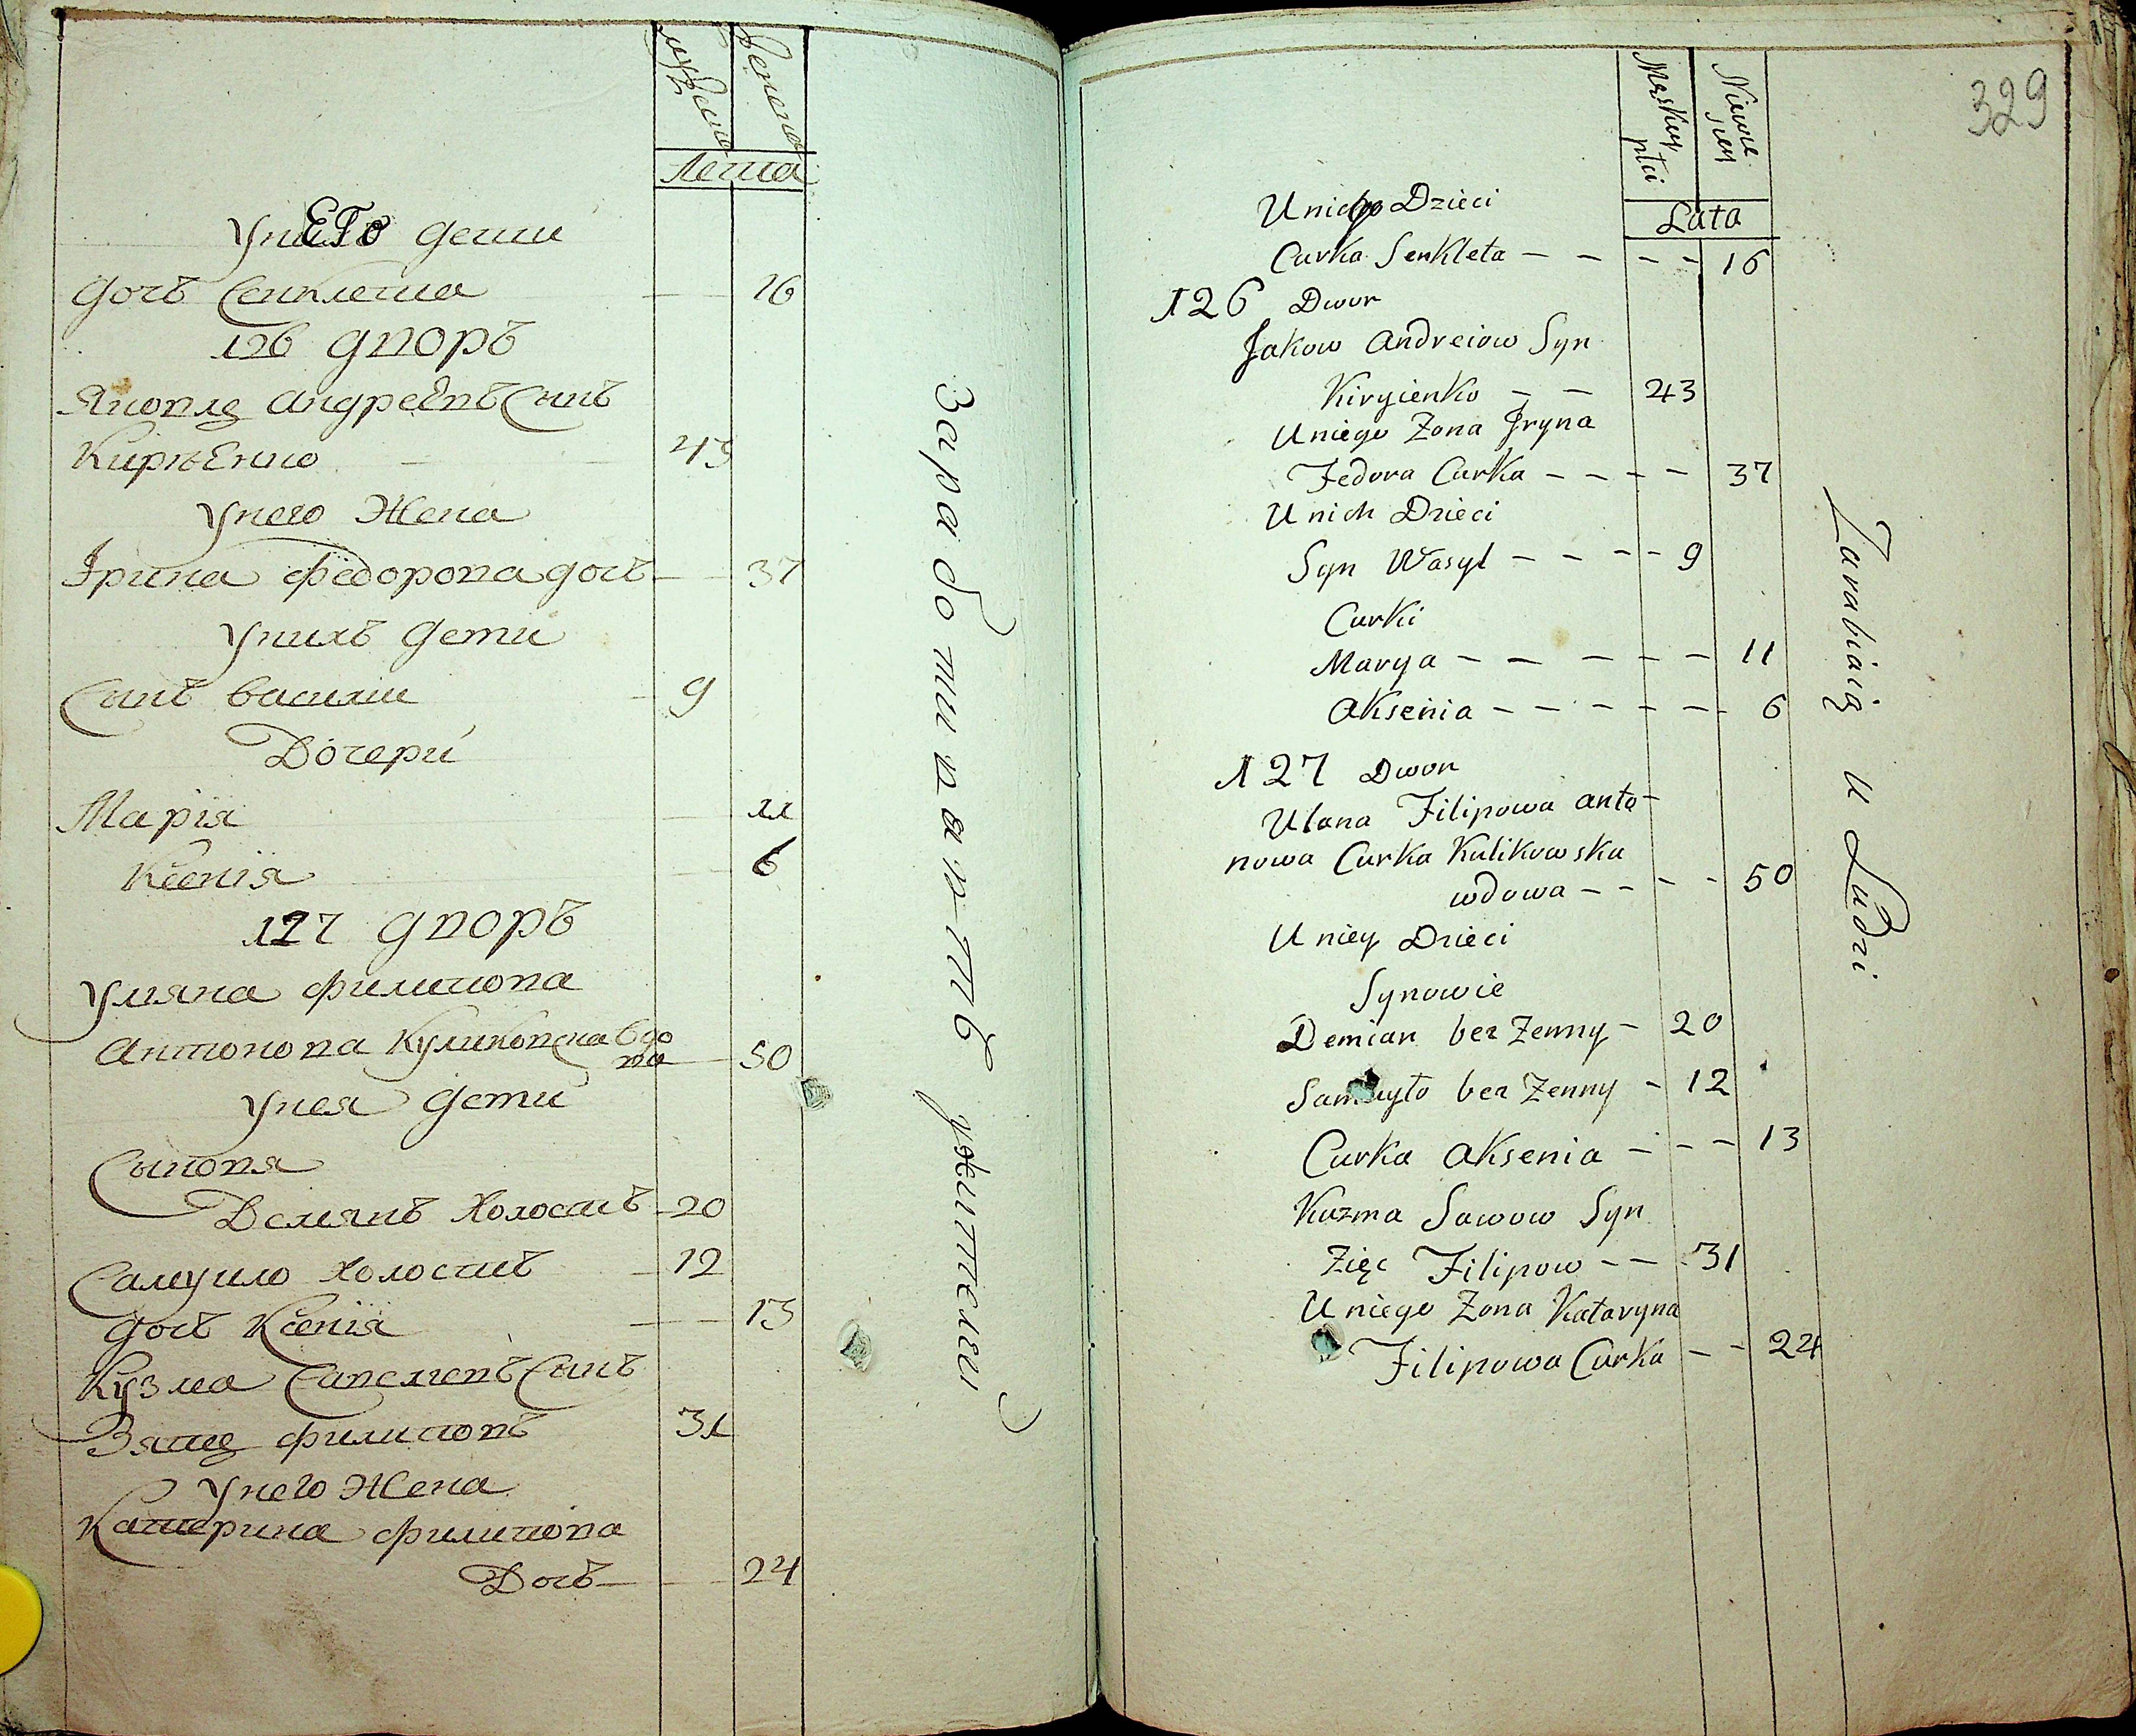 мужеска
женска
лета
У него дети
дочь Сенклета 16
126 дворъ
Яковъ Андреевъ сынъ
Киргѣенко 43
У него жена
Ірина Федорова дочь 37
У нихъ дети
Сынъ василии 9
Дочери
Марія 11
Ксенія 6
127 дворъ
Уляна Филипова
Антонова Куликовска вдо
ва 50
У нея дети
Сыновя
Демянъ холостъ 20
Самуило холостъ 12
дочь Ксенія 13
Кузма Савелиевъ сынъ
Зять Филиповъ 31
У него жена
Катерина Филипова
Дочь 24
Заработивають у жители
329
Męskiey płci
Niewieściey
Lata
U niego Dzieci
Curka Senkleta - - - - 16
126 Dwor
Jakow Andreiow Syn
Kirgienko - - 43
U niego Zona Jryna
Fedora Curka - - - - 37
U nich Dzieci
Syn Wasyl - - - - 9
Curki
Marya - - - - - 11
Aksenia - - - - - - 6
127 Dwor
Ulana Filipowa anto-
nowa Curka Kulikowska
wdowa - - - - 50
U niey Dzieci
Synowie
Demian bez Zenny - 20
Samuyło bez Zenny - 12
Curka Aksenia - - - 13
Kuzma Sawow Syn
Zięc Filipow - - 31
U niego Zona Kataryna
Filipowa Curka - - 24
Zarabiaią u Ludzi